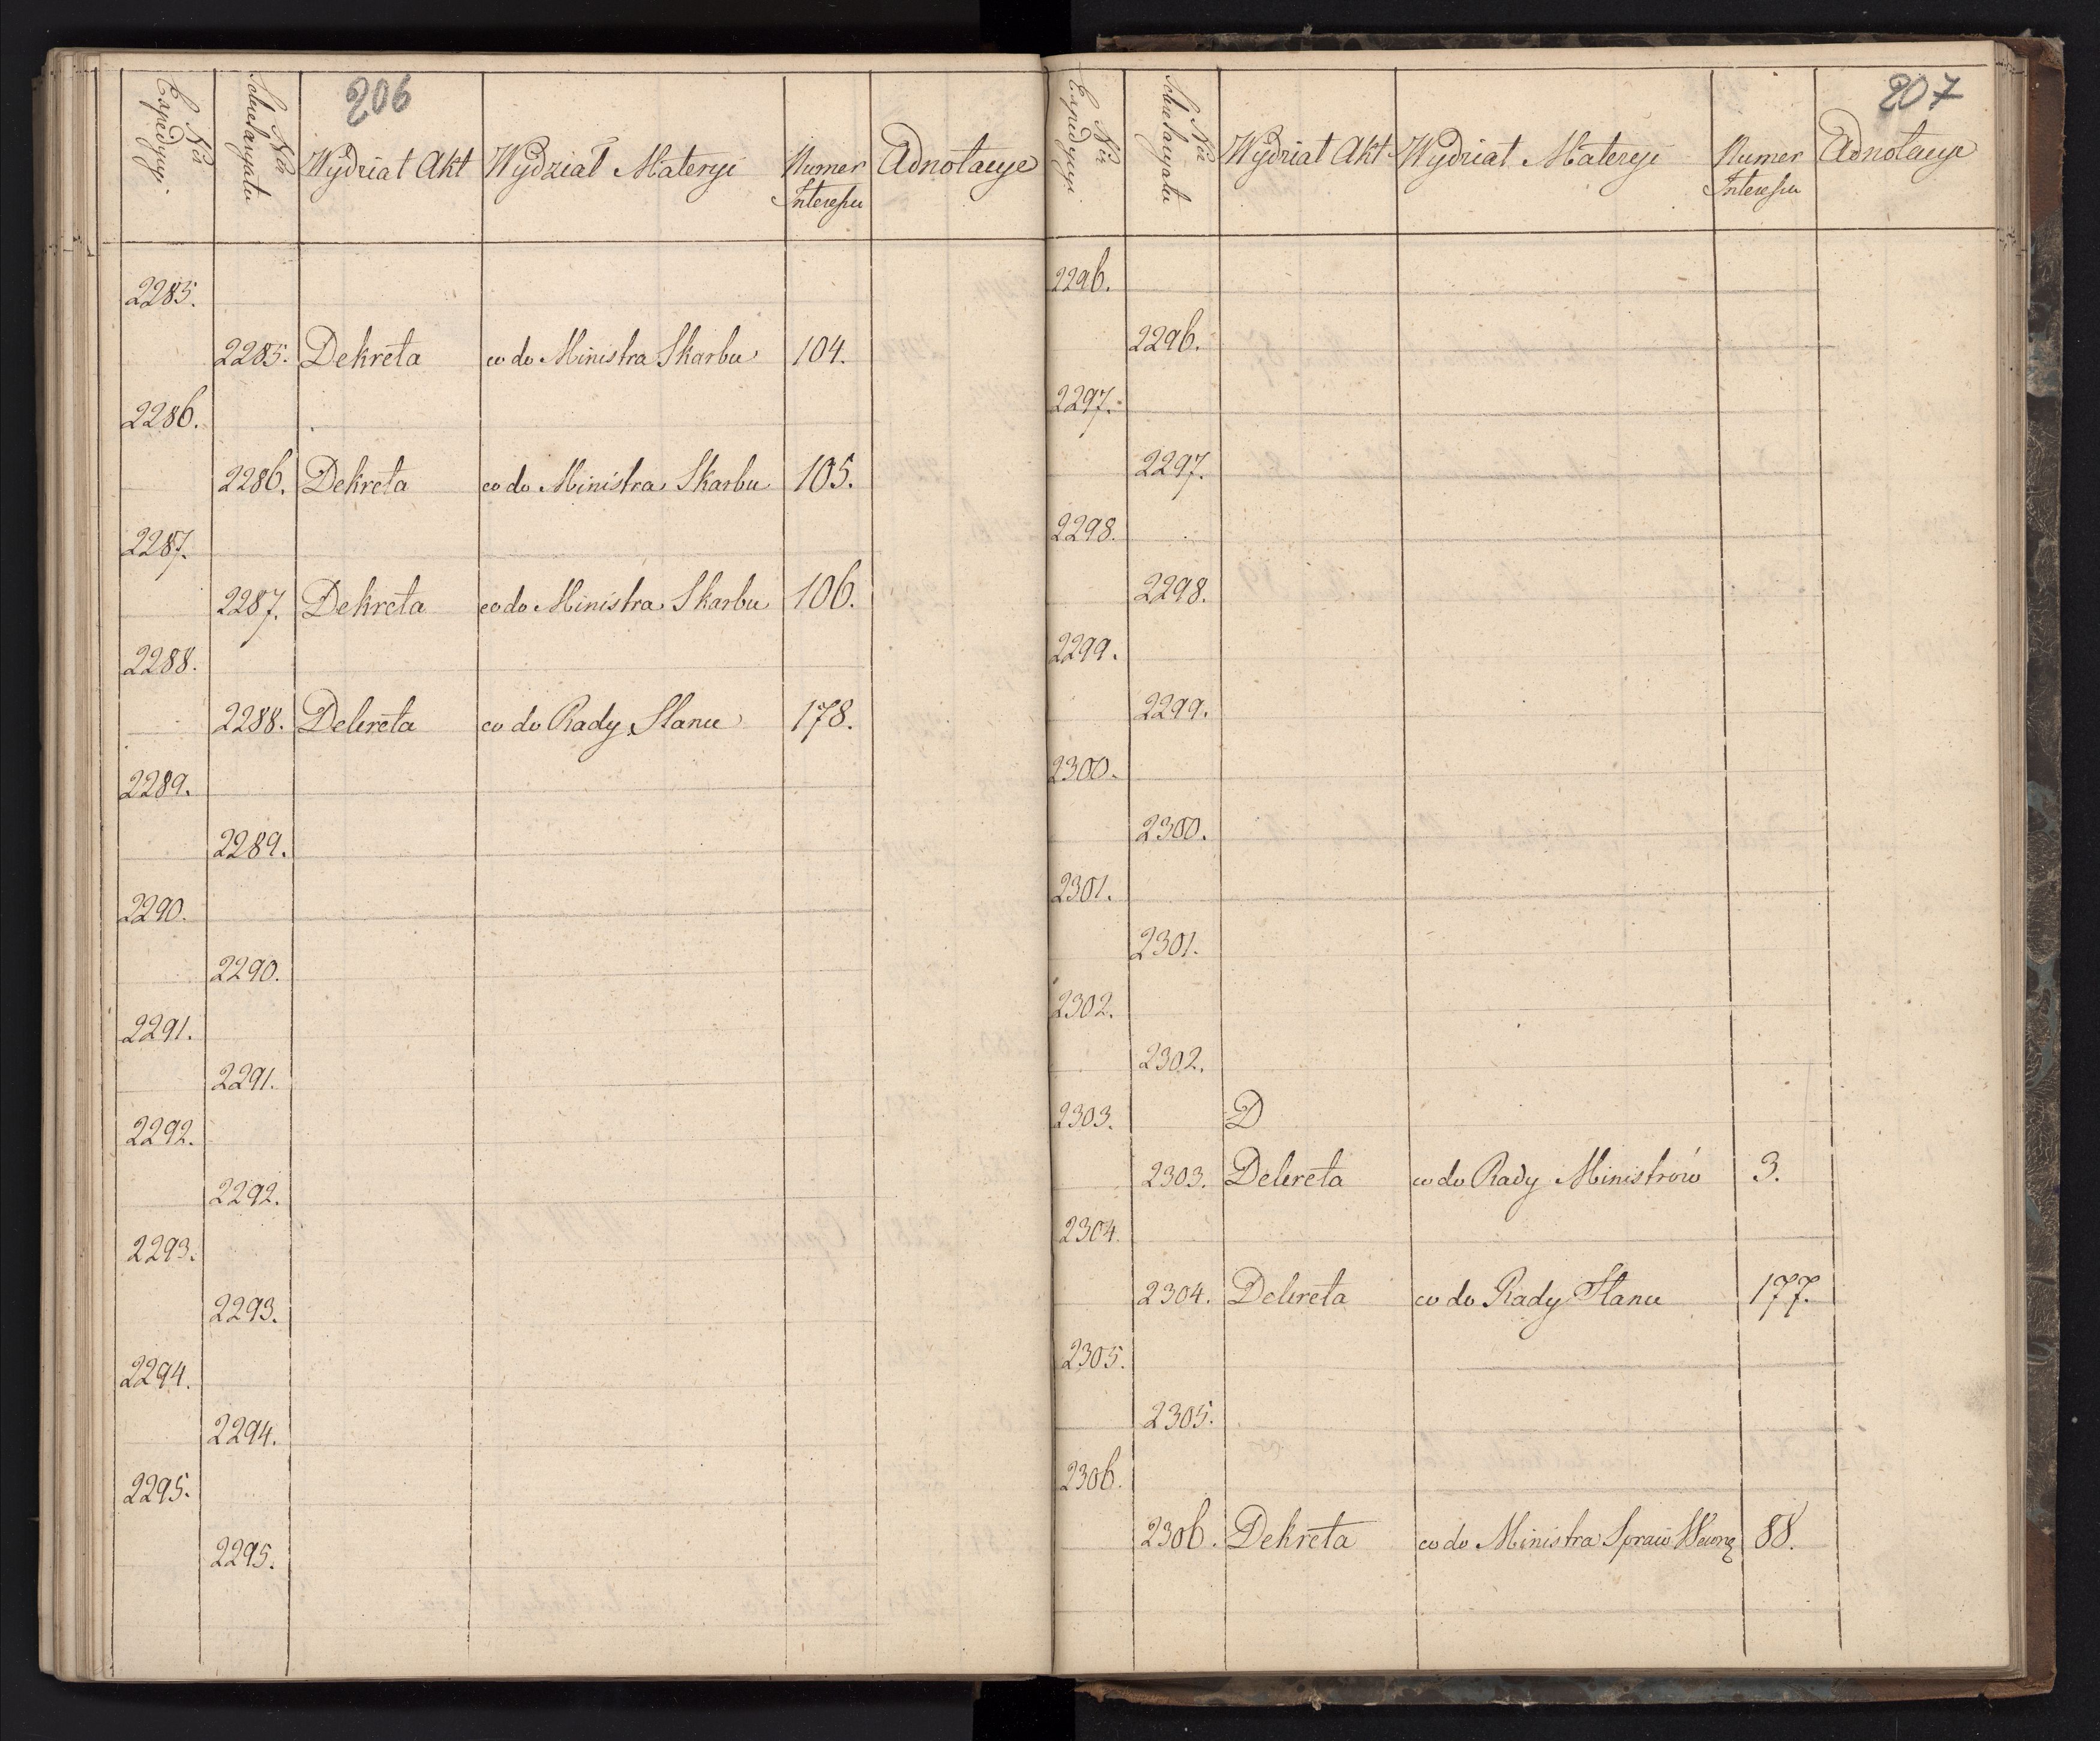 206
Nro Expedycyi
Nro Sekretaryatu
Wydział Akt
Wydział Materyi
Numer Interessu
Adnotacye
2285.
2285. Dekreta co do Ministra Skarbu 104.
2286.
2286. Dekreta co do Ministra Skarbu 105.
2287.
2287. Dekreta co do Ministra Skarbu 106.
2288.
2288. Dekreta co do Rady Stanu 178.
2289.
2289.
2290.
2290.
2291.
2291.
2292.
2292.
2293.
2293.
2294.
2294.
2295.
2295.
207
Nro Expedycyi
Nro Sekretaryatu
Wydział Akt
Wydział Materyi
Numer Interessu
Adnotacye
2296.
2296.
2297.
2297.
2298.
2298.
2299.
2299.
2300.
2300.
2301.
2301.
2302.
2302.
2303. D
2303. Dekreta co do Rady Ministrów 3.
2304.
2304. Dekreta co do Rady Stanu 177.
2305.
2305.
2306.
2306. Dekreta co do Ministra Spraw 88.